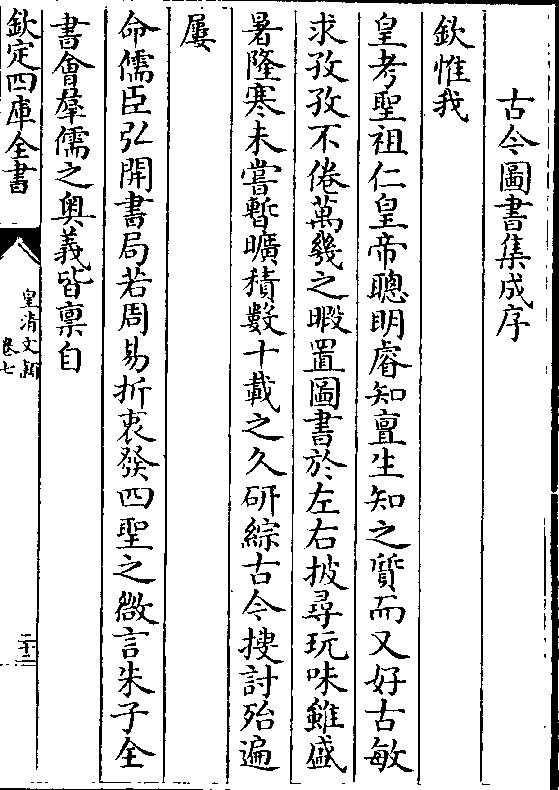 古今圖書集成序
欽惟我
皇考聖祖仁皇帝聰明睿知亶生知之質而又好古敏
求孜孜不倦萬幾之暇置圖書於左右披尋玩味雖盛
暑隆寒未嘗暫曠積數十載之久研綜古今搜討殆遍
屢
命儒臣弘開書局若周易折衷發四聖之微言朱子全
書會羣儒之奥義皆禀自
欽定四庫全書
皇清文頴
卷七
二十二